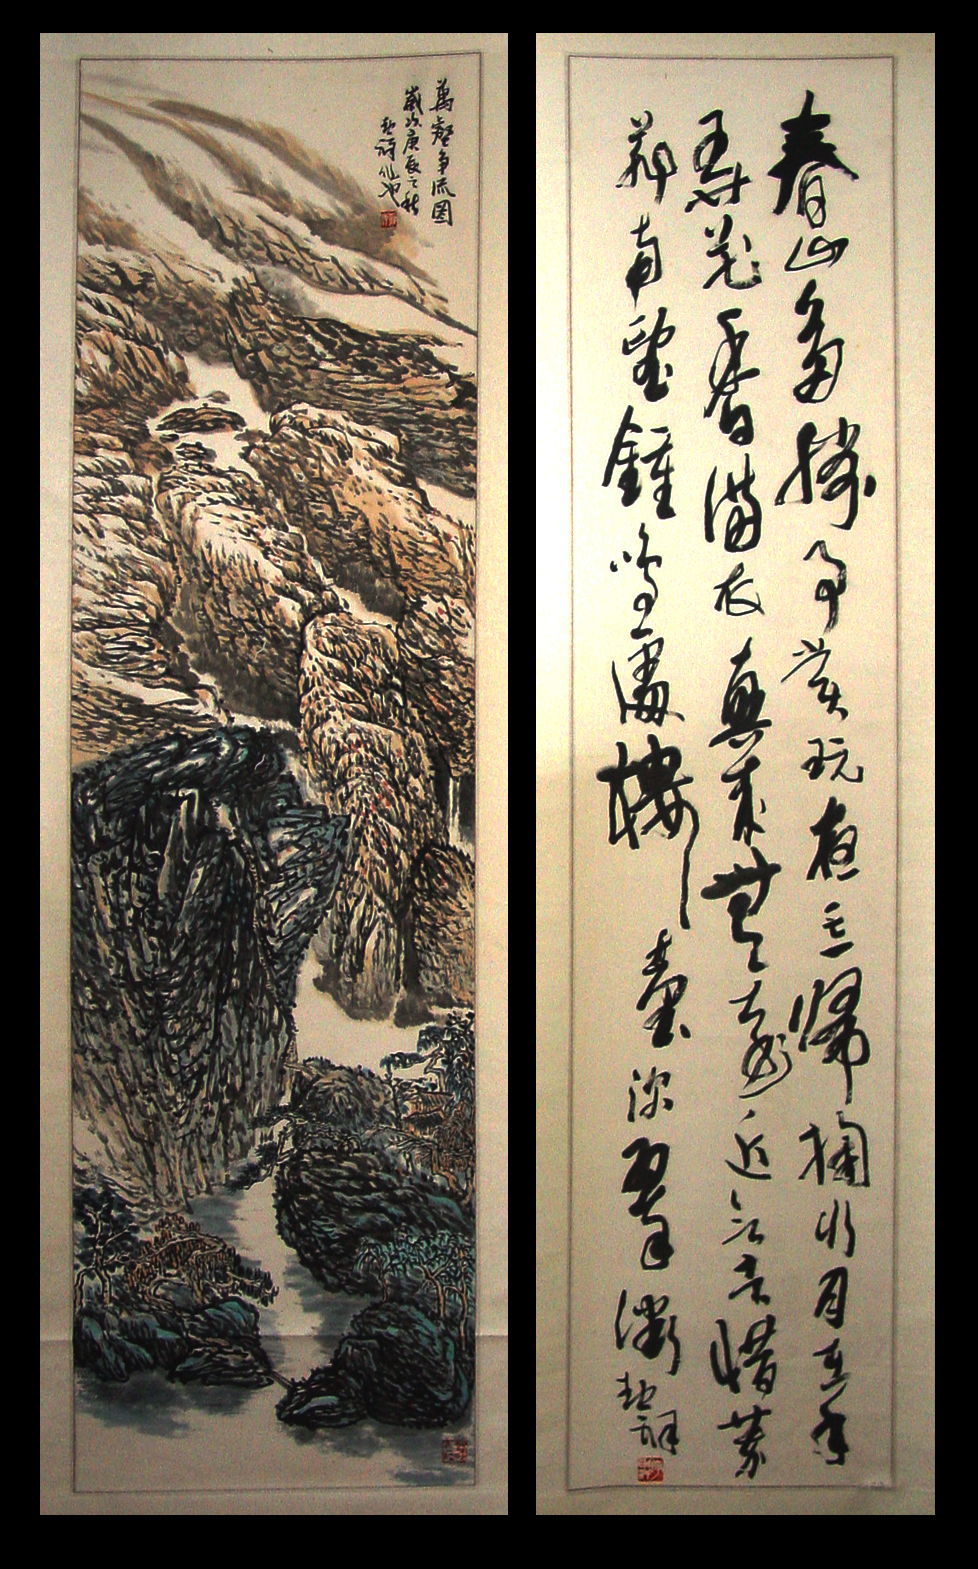 萬壑爭流圖
歲次庚辰之秋
春山多勝事賞玩夜忘歸掬水月在手
弄花香滿衣興來無遠近欲去惜芳
菲南望鐘鳴處樓臺深翠微